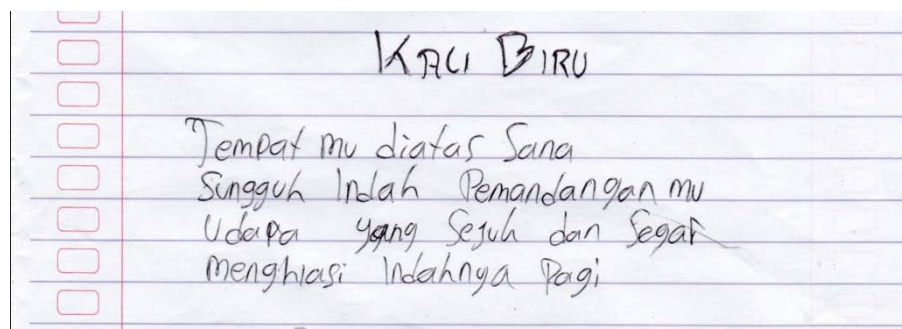 KALI BIRU
Tempat mu diatas Sana
Sungguh Indah Pemandangan mu
Udara yang Sejuh dan Segar
menghiasi Indahnya Pagi